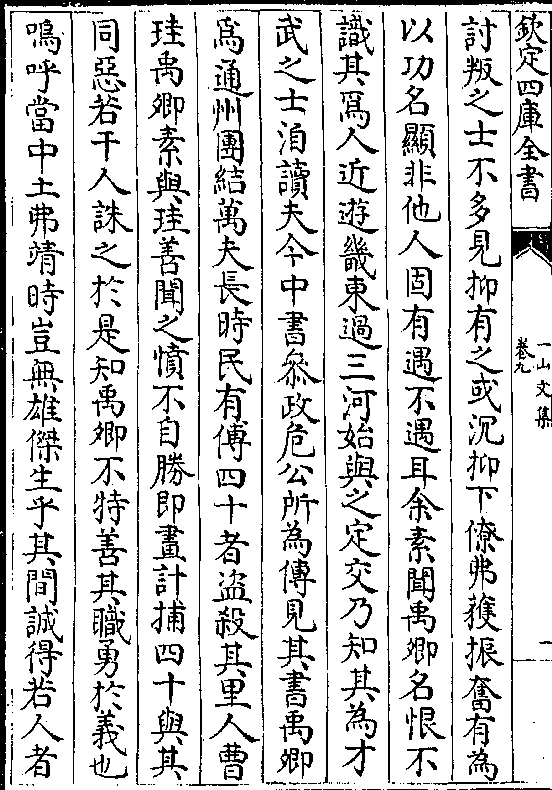 欽定四庫全書
一山文集
卷九
一
討叛之士不多見抑有之或沉抑下僚弗獲振奮有為
以功名顯非他人固有遇不遇耳余素聞禹卿名恨不
識其爲人近遊畿東過三河始與之定交乃知其為才
武之士洎讀夫今中書叅政危公所為傳見其書禹卿
爲通州團結萬夫長時民有傅四十者盗殺其里人曹
珪禹卿素與珪善聞之憤不自勝即畫計捕四十與其
同惡若干人誅之於是知禹卿不特善其職勇於義也
嗚呼當中土弗靖時豈無雄傑生乎其間誠得若人者